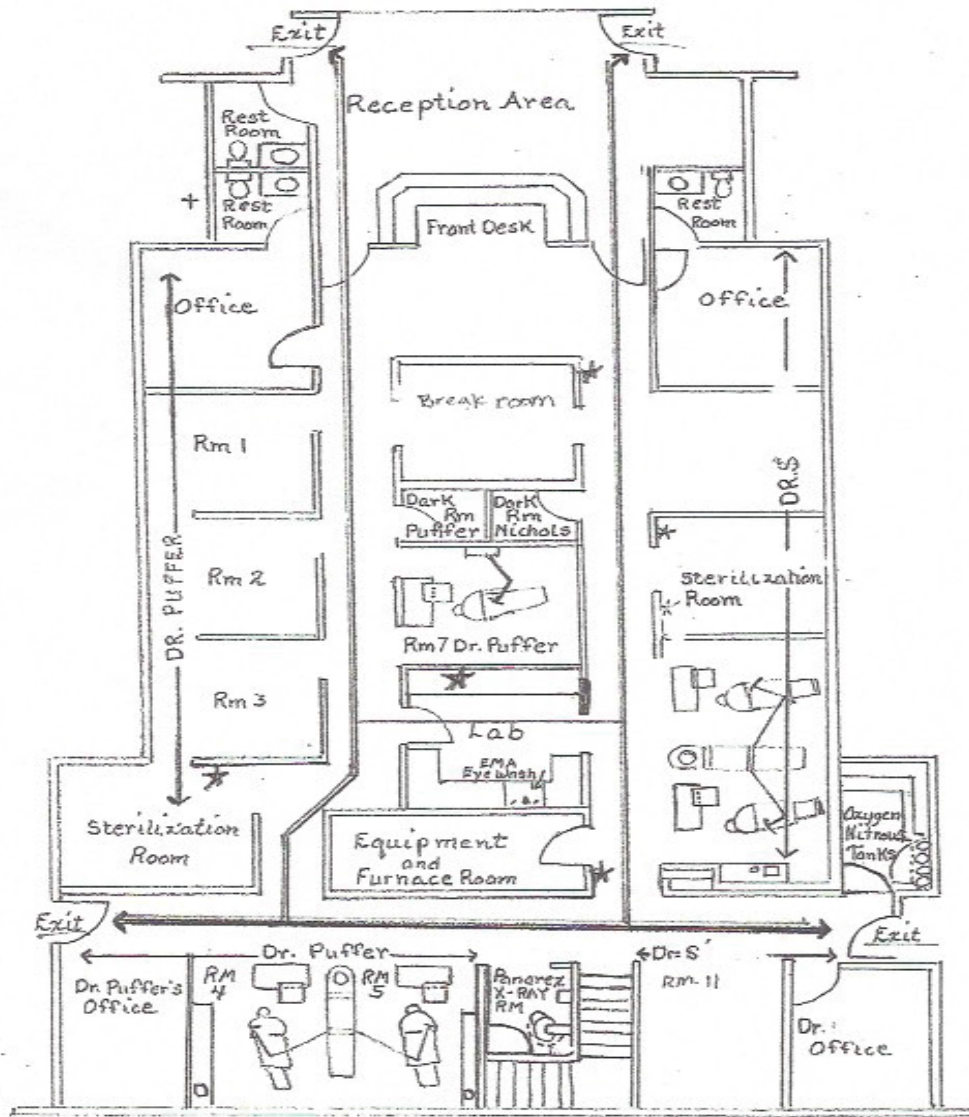 Exit
Exit
Reception Area
Rest
Room
Rest
Room
Rest
Room
Front Desk
Office
Office
Break room
Rm 1
Dark
Rm
Puffer
Dark
Rm
Nichols
DR. PUFFER
DR.S'
Rm 2
Sterilization
Room
Rm 7 Dr. Puffer
Rm 3
Lab
EMA
Eyewash
Sterilization
Room
Equipment
and
Furnace Room
Oxygen
Nitrous
Tanks
Exit
Exit
Dr. Puffer
Dr. S'
Dr. Puffer's
Office
RM
4
RM
5
Panorex
X-RAY
RM
RM-11
Dr.
Office